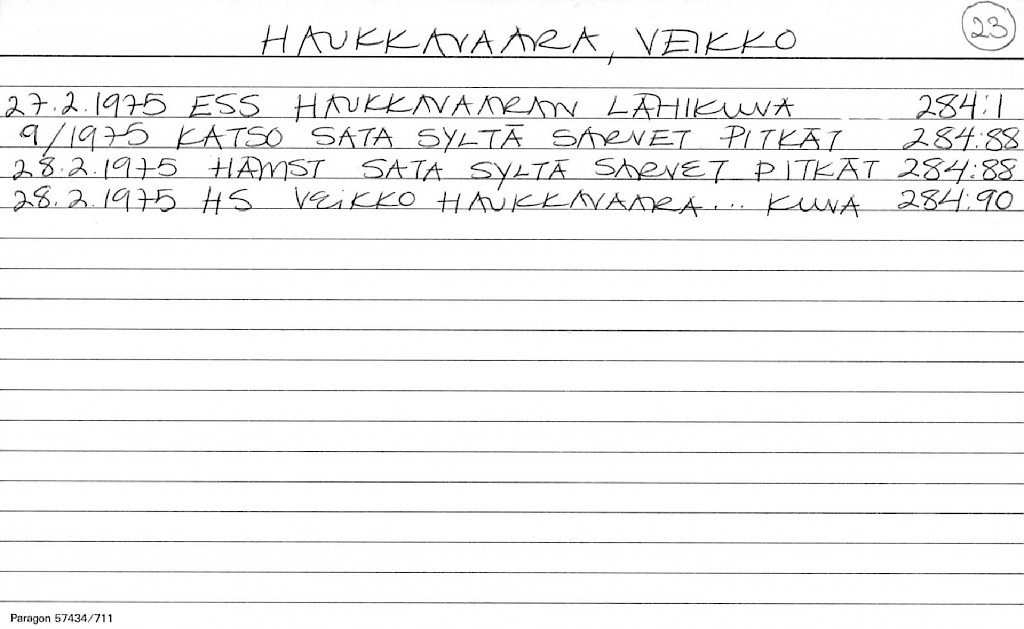 HAUKKAVAARA, VEIKKO 23
27.2.1975 ESS HAUKKAVAARAN LÄHIKUVA 284:1
9/1975 KATSO SATA SYLTÄ SARVET PITKÄT 284:88
28.2.1975 HÄMST SATA SYLTÄ SARVET PITKÄT 284:88
28.2.1975 HS VEIKKO HAUKKAVAARA... KUVA 284:90
Paragon 57434/711